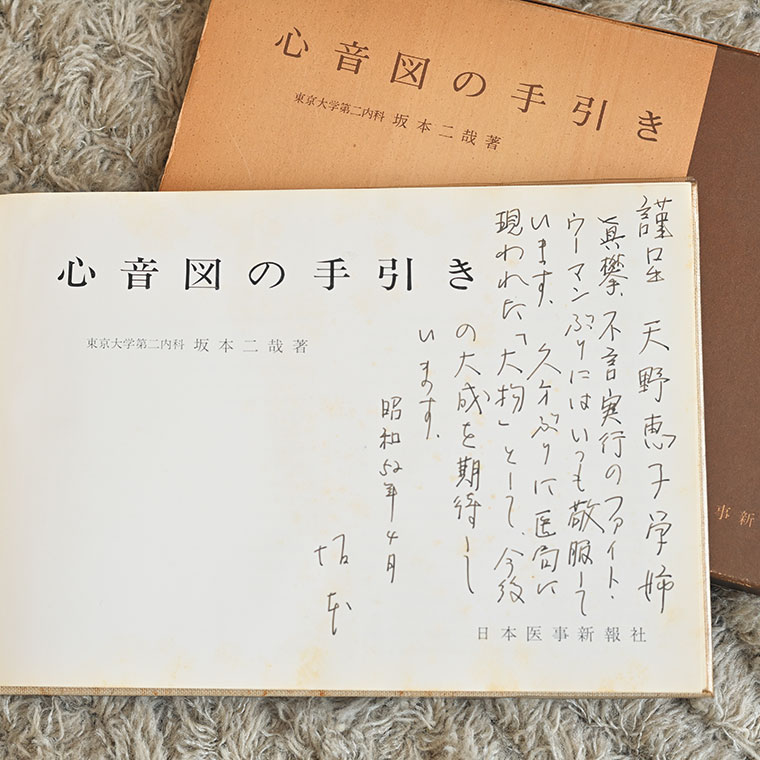 心音図の手引き
東京大学第二内科 坂本二哉著
事新
心音図の手引き
東京大学第二内科 坂本二哉著
謹呈 天野恵子学姉
真摯、不言実行のファイト・
ウーマンぶりにはいつも敬服して
います。久々ぶりに医局に
現われた「大物」として、今後
の大成を期待して
います。
昭和52年4月
坂本
日本医事新報社